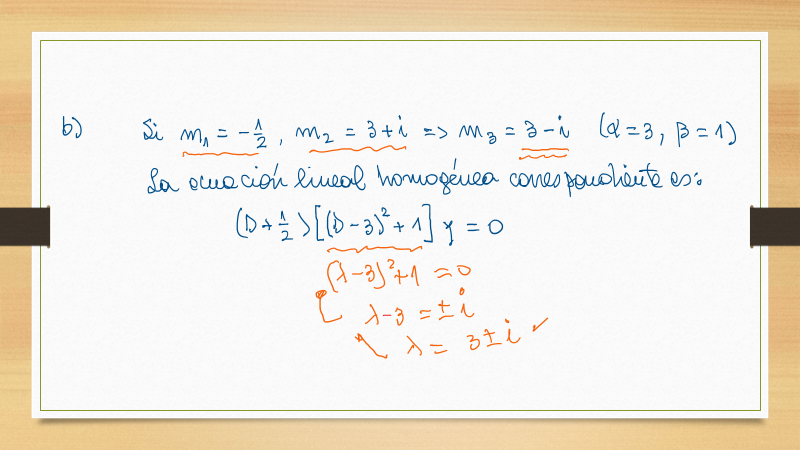 b) Si m₁ = -1/2 , m₂ = 3+i => m₃ = 3-i (α=3, β=1)
La ecuación lineal homogénea correspondiente es:
(D+1/2)[(D-3)²+1] y = 0
(λ-3)²+1 = 0
λ-3 = ±i
λ = 3±i ✓